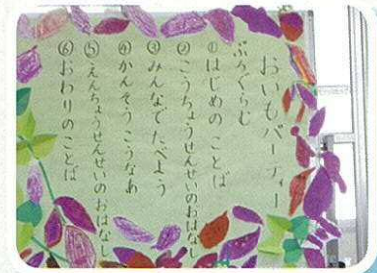 おいもパーティー
ぷろぐらむ
①はじめのことば
②こうちょうせんせいのおはなし
③みんなでたべよう
④かんそうこうなあ
⑤えんちょうせんせいのおはなし
⑥おわりのことば